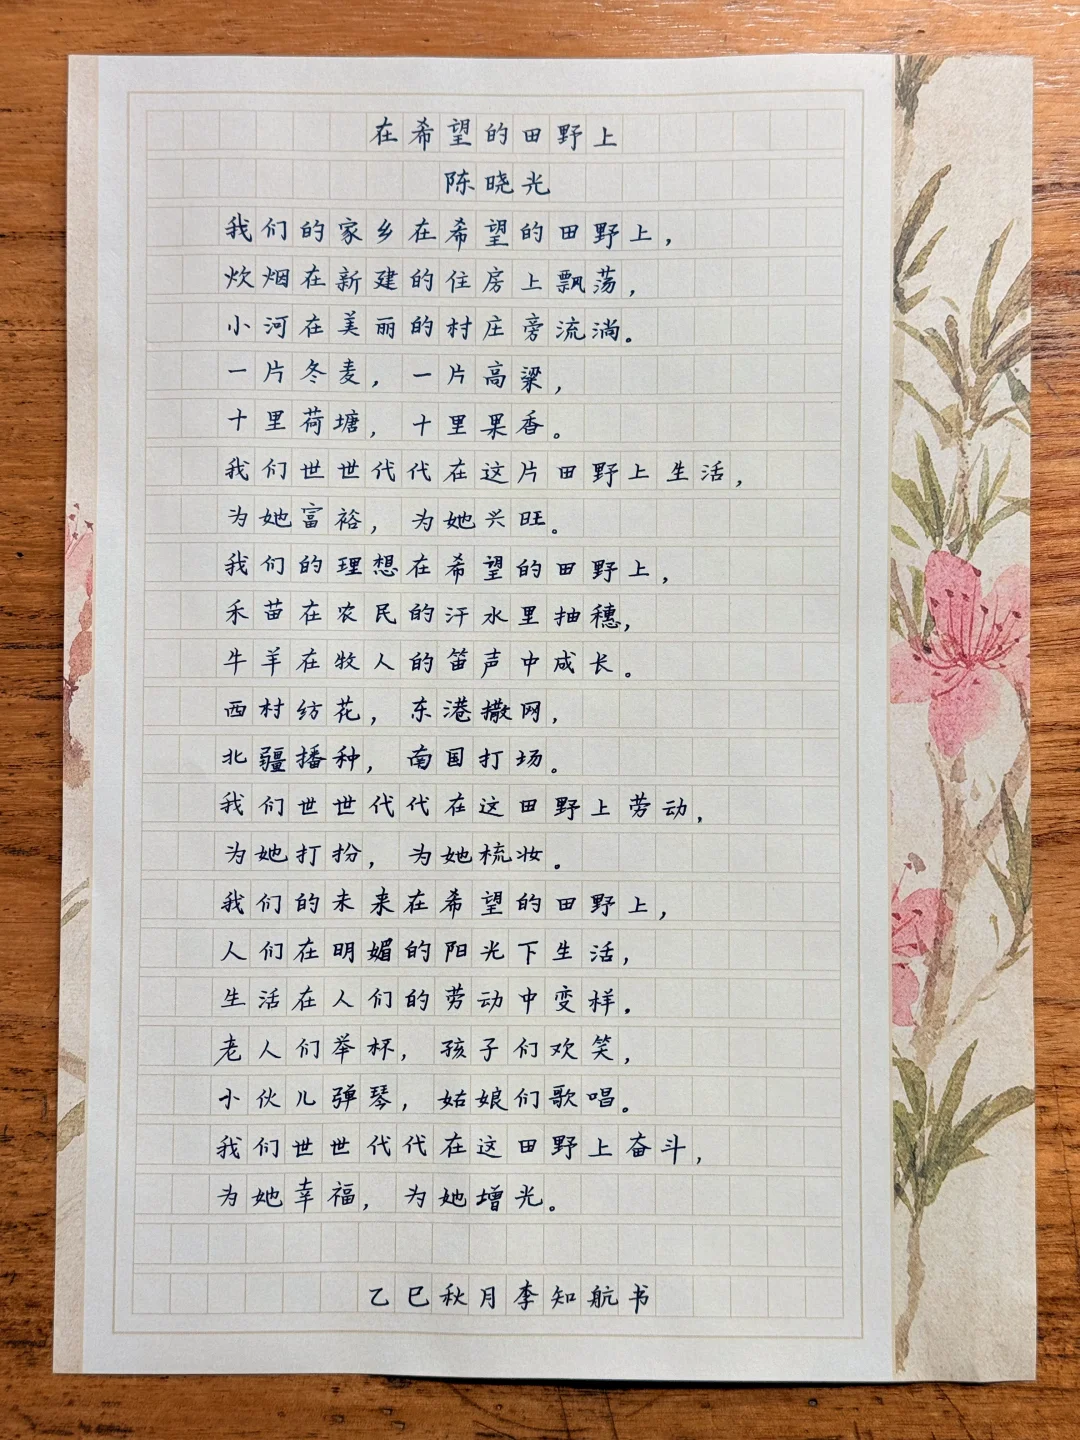 在希望的田野上
陈晓光
我们的家乡在希望的田野上，
炊烟在新建的住房上飘荡，
小河在美丽的村庄旁流淌。
一片冬麦，一片高粱，
十里荷塘，十里果香。
我们世世代代在这片田野上生活，
为她富裕，为她兴旺。
我们的理想在希望的田野上，
禾苗在农民的汗水里抽穗，
牛羊在牧人的笛声中成长。
西村纺花，东港撒网，
北疆播种，南国打场。
我们世世代代在这田野上劳动，
为她打扮，为她梳妆。
我们的未来在希望的田野上，
人们在明媚的阳光下生活，
生活在人们的劳动中变样。
老人们举杯，孩子们欢笑，
小伙儿弹琴，姑娘们歌唱。
我们世世代代在这田野上奋斗，
为她幸福，为她增光。
乙巳秋月李知航书